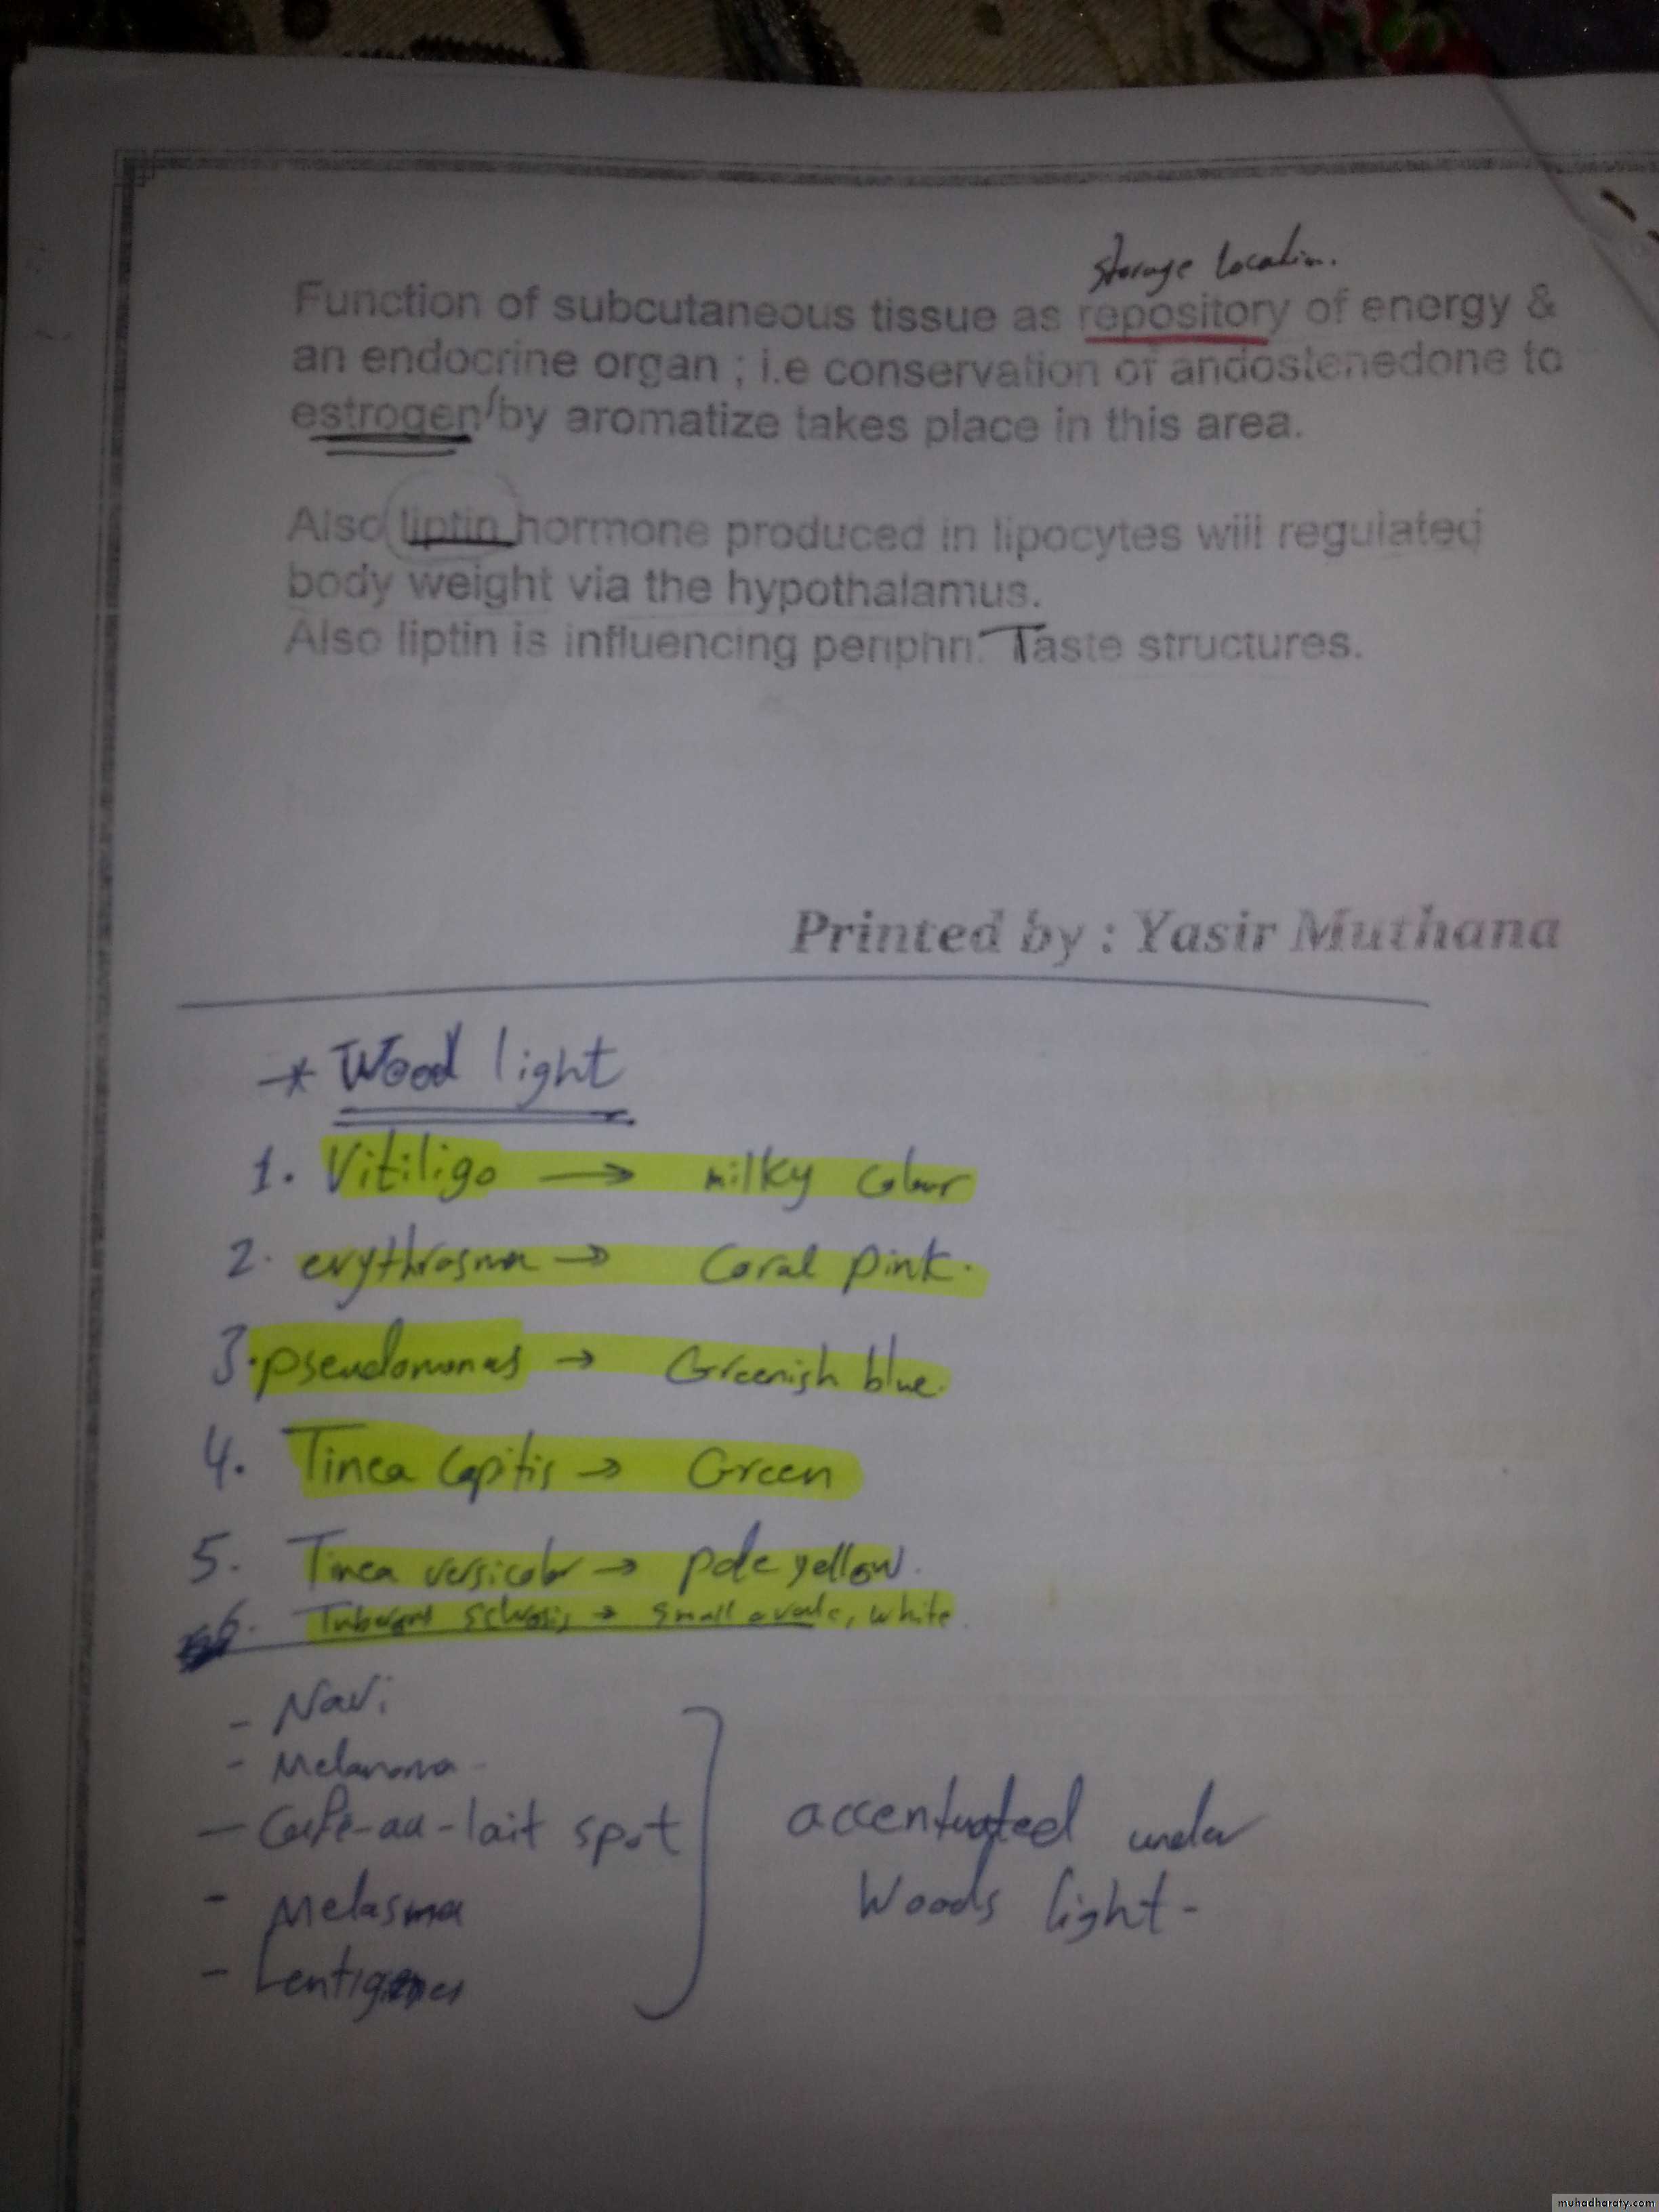 storage location.
Function of subcutaneous tissue as repository of energy &
an endocrine organ ; i.e conservation of andostenedone to
estrogen by aromatize takes place in this area.
Also liptin hormone produced in lipocytes will regulated
body weight via the hypothalamus.
Also liptin is influencing periphri. Taste structures.
Printed by : Yasir Muthana
* Wood light
1. Vitiligo → milky colour
2. erythrasma → Coral pink.
3. pseudomonas → Greenish blue.
4. Tinea Capitis → Green
5. Tinea versicolor → pale yellow.
6. Tuberous sclerosis → small ovale, white.
- Navi
- Melanoma -
- Cafe-au-lait spot
- Melasma
- Lentigenes
accentuated under
Woods light -
muhadharaty.com